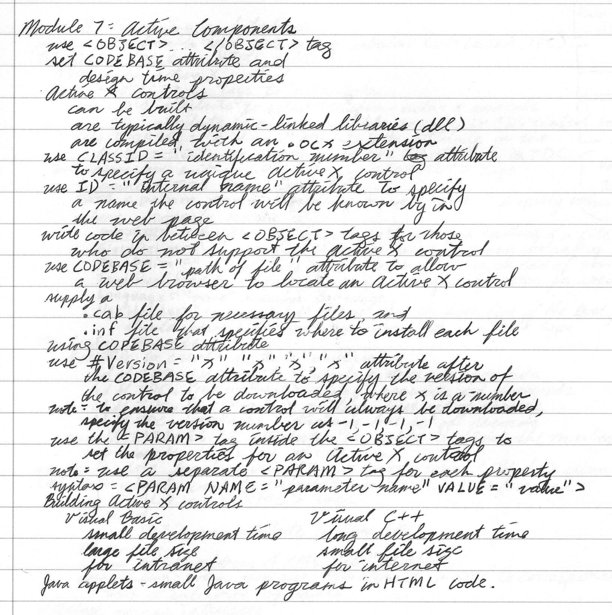 Module 7: Active Components
use <OBJECT> ... </OBJECT> tag
set CODEBASE attribute and
design time properties
Active X controls
can be built
are typically dynamic-linked libraries (dll)
are compiled with an .OCX extension
use CLASSID = "identification number" attribute
to specify a unique active X control
use ID = "internal name" attribute to specify
a name the control will be known by in
the web page
write code in between <OBJECT> tags for those
who do not support the active X control
use CODEBASE = "path of file" attribute to allow
a web browser to locate an active X control
supply a
.cab file for necessary files, and
.inf file that specifies where to install each file
using CODEBASE attribute
use #Version = "x" "x", "x", "x" attribute after
the CODEBASE attribute to specify the version of
the control to be downloaded, where x is a number
note: to ensure that a control will always be downloaded,
specify the version number as -1, -1, -1, -1
use the <PARAM> tag inside the <OBJECT> tags to
set the properties for an Active X control
note: use a separate <PARAM> tag for each property
syntax = <PARAM NAME = "parameter name" VALUE = "value">
Building Active X controls
Visual Basic Visual C++
small development time long development time
large file size small file size
for intranet for internet
Java applets - small Java programs in HTML code.